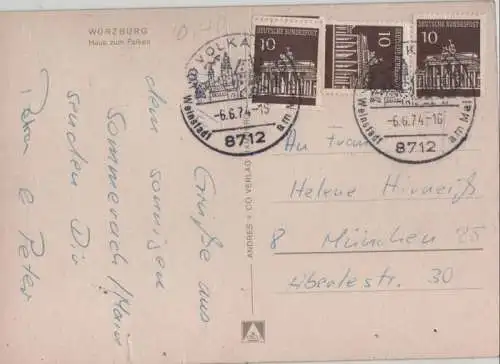 WÜRZBURG
Haus zum Falken
Grüße aus
dem sonnigen
Sommerach/Main
senden Dir
& Peter
ANDRES + CO VERLAG
DEUTSCHE BUNDESPOST
10
DEUTSCHE BUNDESPOST
10
DEUTSCHE BUNDESPOST
10
VOLKA
Weinstadt am Ma
-6.6.74-15
8712
VOLKA
Weinstadt am Mai
-6.6.74-16
8712
An Frau
Helene
8 München 25
30